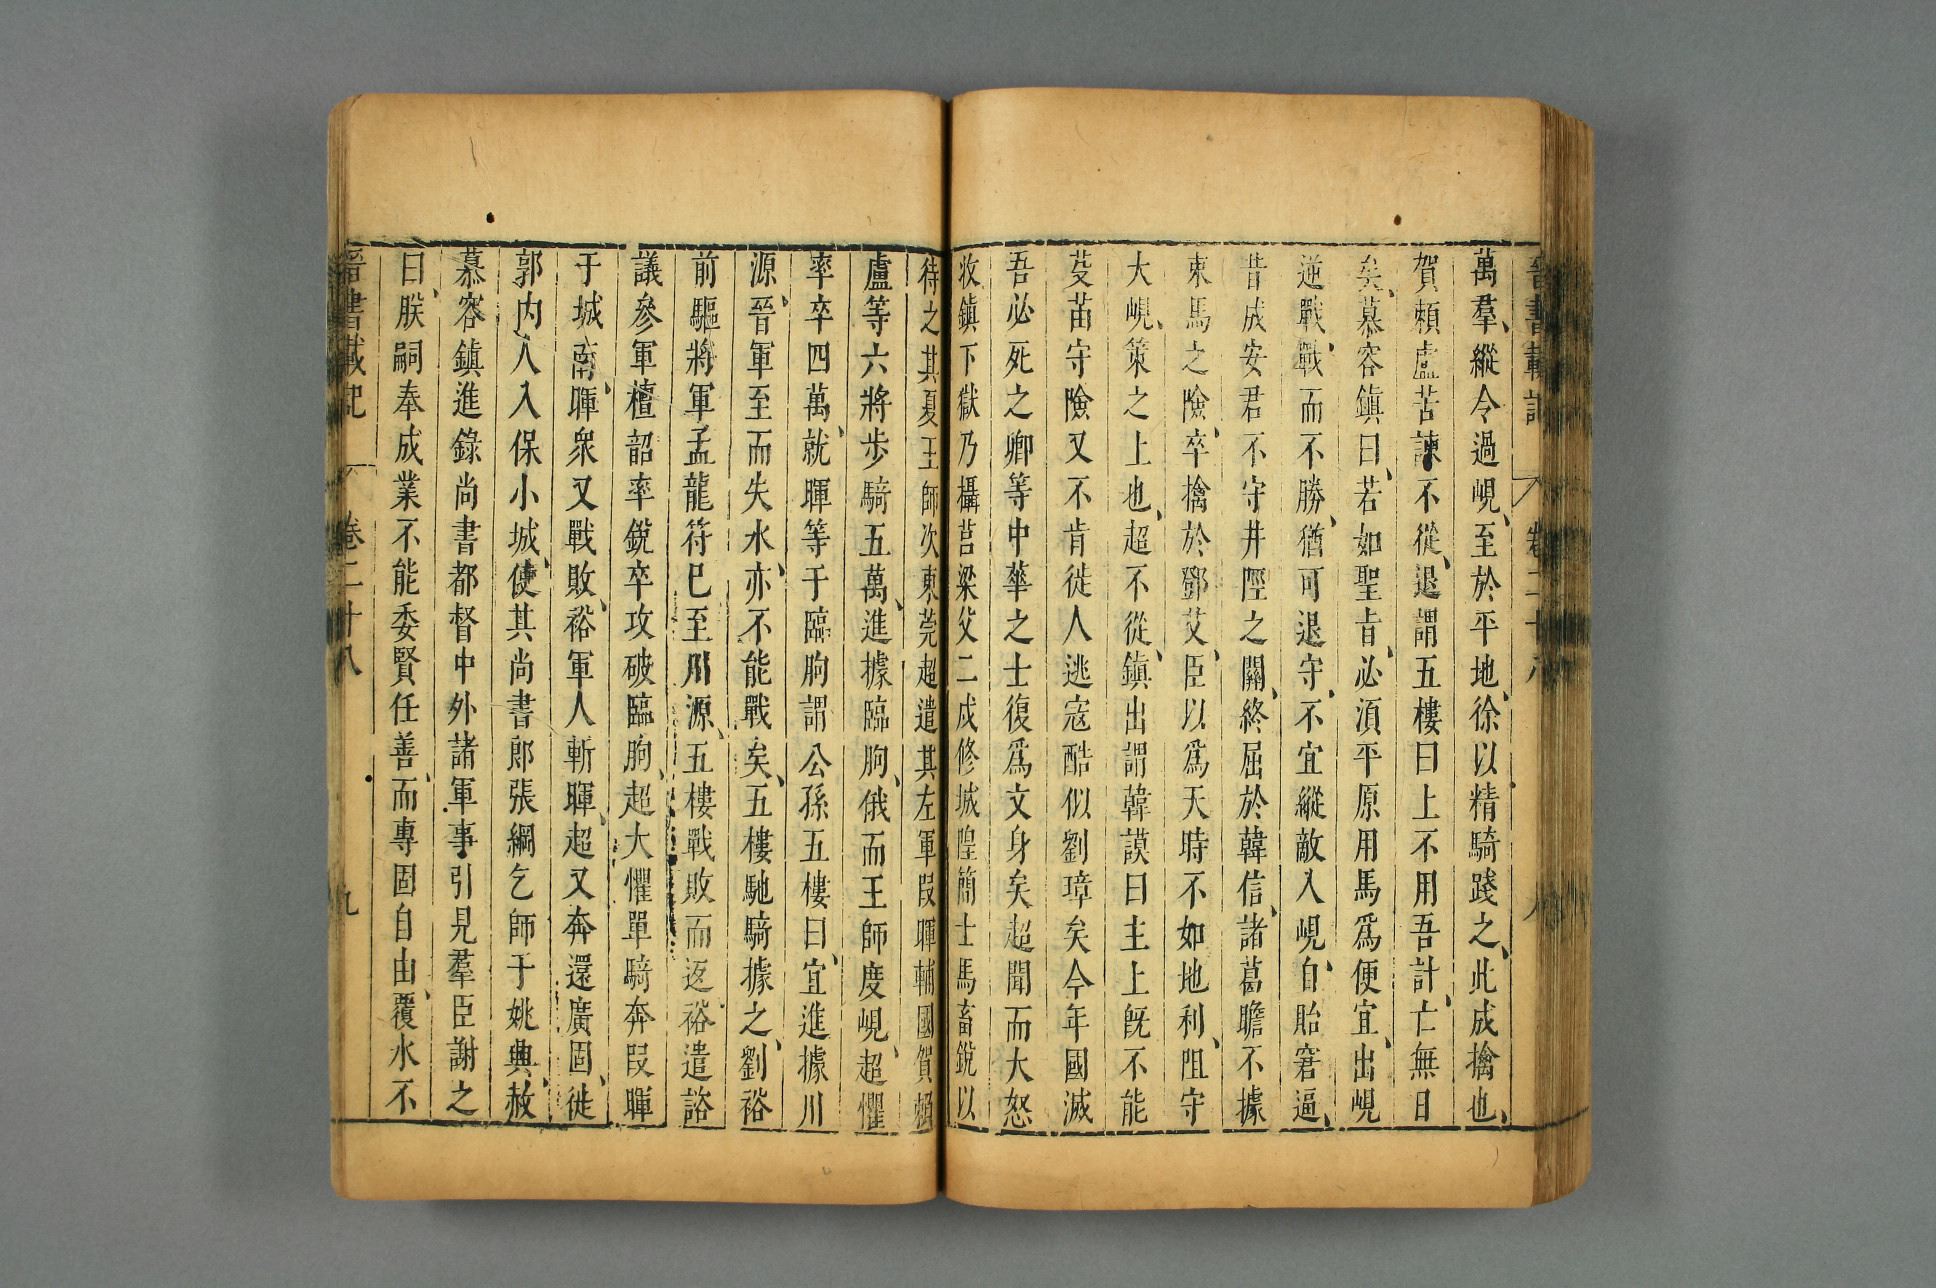 晉書載記 卷二十八 八
萬羣、縱令過峴、至於平地、徐以精騎踐之、此成擒也、
賀賴盧苦諫不從、退謂五樓曰上不用吾計、亡無日
矣、慕容鎮曰、若如聖旨、必須平原用馬爲便宜、出峴
逆戰、戰而不勝、猶可退守、不宜縱敵入峴、自貽窘逼、
昔成安君不守井陘之關、終屈於韓信、諸葛瞻不據
束馬之險、卒擒於鄧艾、臣以爲天時不如地利、阻守
大峴、策之上也、超不從、鎮出謂韓𧨏曰主上旣不能
芟苗守險又不肯徙人逃寇酷似劉璋矣今年國滅
吾必死之卿等中華之士復爲文身矣超聞而大怒
收鎮下獄乃攝莒梁父二戍修城隍簡士馬畜銳以
待之其夏王師次東莞超遣其左軍段暉輔國賀賴
盧等六將步騎五萬、進據臨朐、俄而王師度峴、超懼
率卒四萬、就暉等于臨朐謂公孫五樓曰、宜進據川
源、晉軍至而失水、亦不能戰矣、五樓馳騎據之、劉裕
前驅將軍孟龍符已至川源、五樓戰敗而返、裕遣諮
議參軍檀韶率銳卒攻破臨朐、超大懼單騎奔段暉
于城南、暉衆又戰敗、裕軍人斬暉、超又奔還廣固、徙
郭內人入保小城、使其尚書郎張綱乞師于姚興、赦
慕容鎮進錄尚書都督中外諸軍事引見羣臣謝之
曰、朕嗣奉成業不能委賢任善、而專固自由、覆水不
晉書載記 卷二十八 九